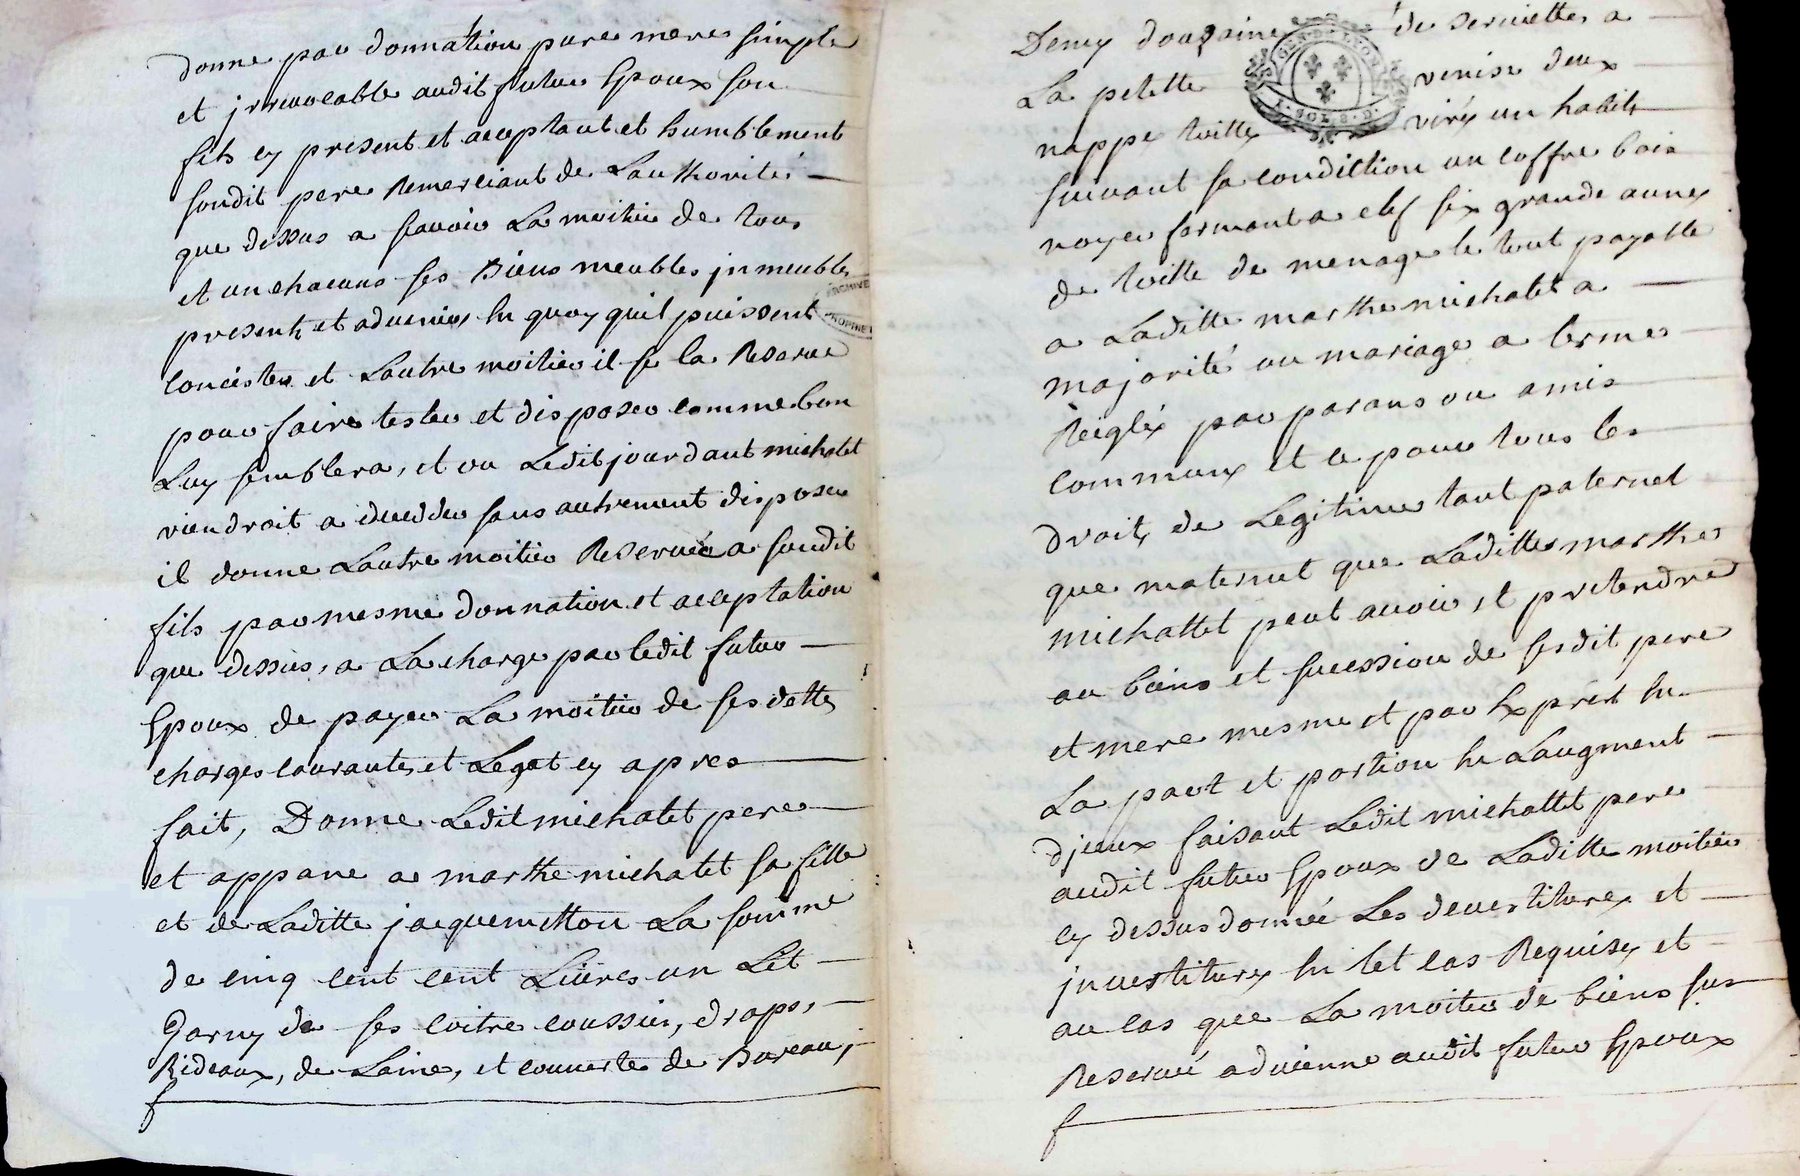 donne par donnation pure mere simple
et jrrevocable audit futur Epoux son
fils cy present et aceptant et humblement
sondit pere Remerciant de Lauthorité
que dessus a scavoir La moitié de tous
et un chacuns ses Biens meubles jnmeubles
presents et advenirs En quoy quil puissent
concister et Lautre moitiée il se la Reserve
pour faire tester et disposer comme bon
Luy semblera, et ou Ledit jourdant michalet
viendroit a deceder sans autrement disposer
il donne Lautre moitiée Reservée a sondit
fils par mesme donnation et aceptation
que dessus, a La charge par ledit futur
Epoux de payer La moitié de ses dettes
charges courantes et Legat cy apres
fait, Donne Ledit michalet pere
et appane a marthe michalet sa fille
et de Laditte jacquemetton La somme
de cinq cent cent Livres un Lit
Garny de ses coitre coussin, draps,
Rideaux, de Laine, et couverte de Bureau,
Demy douzaine de serviettes a
La petitte venise deux
nappe toille virés un habit
suivant sa condittion un coffre bois
noyer fermant a clef six grande aunes
de toille de menage le tout payable
a Laditte marthe michalet a
majorité ou mariage a termes
Reiglés par parans ou amis
communs et ce pour tous les
droits de Legitime tant paternel
que maternel que Laditte marthe
michallet peut avoir et pretendre
au biens et sucession de sesdit pere
et mere mesme et par Exprest En
La part et portion En Laugment
djceux faisant Ledit michallet pere
audit futur Epoux de Laditte moitiée
cy dessus donnée Les devestitures et
jnvestitures En tel cas Requises et
au cas que La moitié de biens sus
Reservé advienne audit futur Epoux